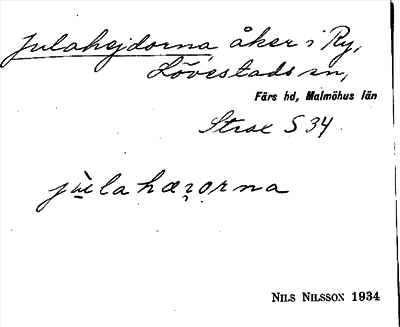 Julahejdorna åker i Ry,
Lövestads sn,
Färs hd, Malmöhus län
Strax S 34.
NILS NILSSON 1934